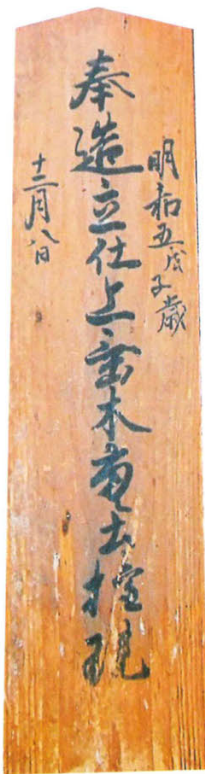 明和五戊子歳
奉造立仕上 木 権現
十二月八日